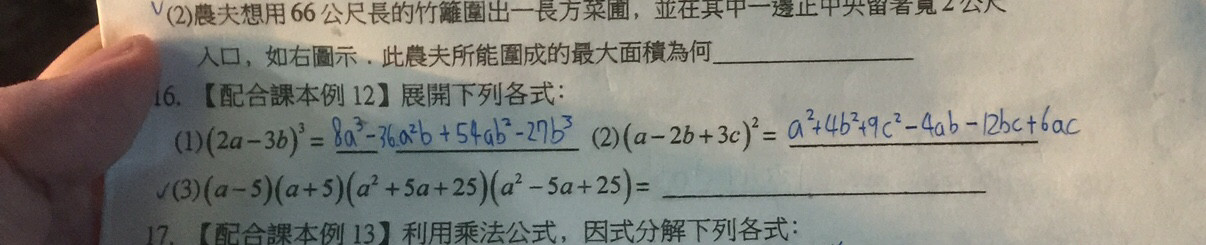 ˇ(2)農夫想用66公尺長的竹籬圍出一長方菜圃，並在其中一邊正中央留著寬2公尺
入口，如右圖示．此農夫所能圍成的最大面積為何
16.【配合課本例12】展開下列各式：
(1)(2a-3b)³= 8a³-36a²b+54ab²-27b³ (2)(a-2b+3c)²= a²+4b²+9c²-4ab-12bc+6ac
✓(3)(a-5)(a+5)(a²+5a+25)(a²-5a+25)=
17.【配合課本例13】利用乘法公式，因式分解下列各式：